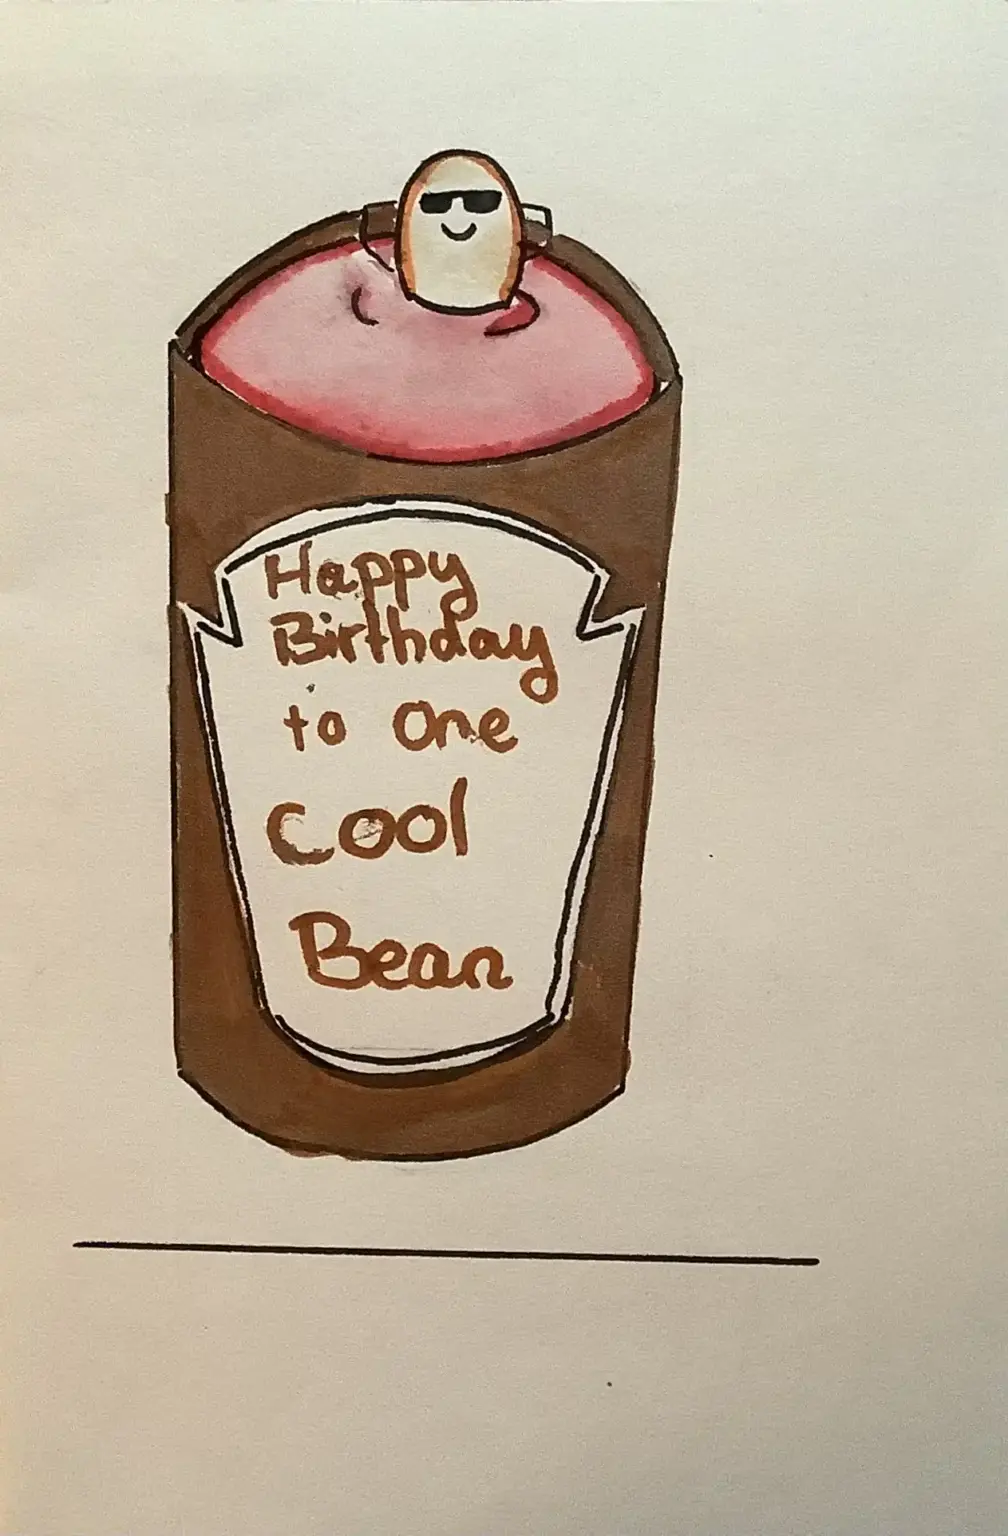 Happy
Birthday
to one
Cool
Bean